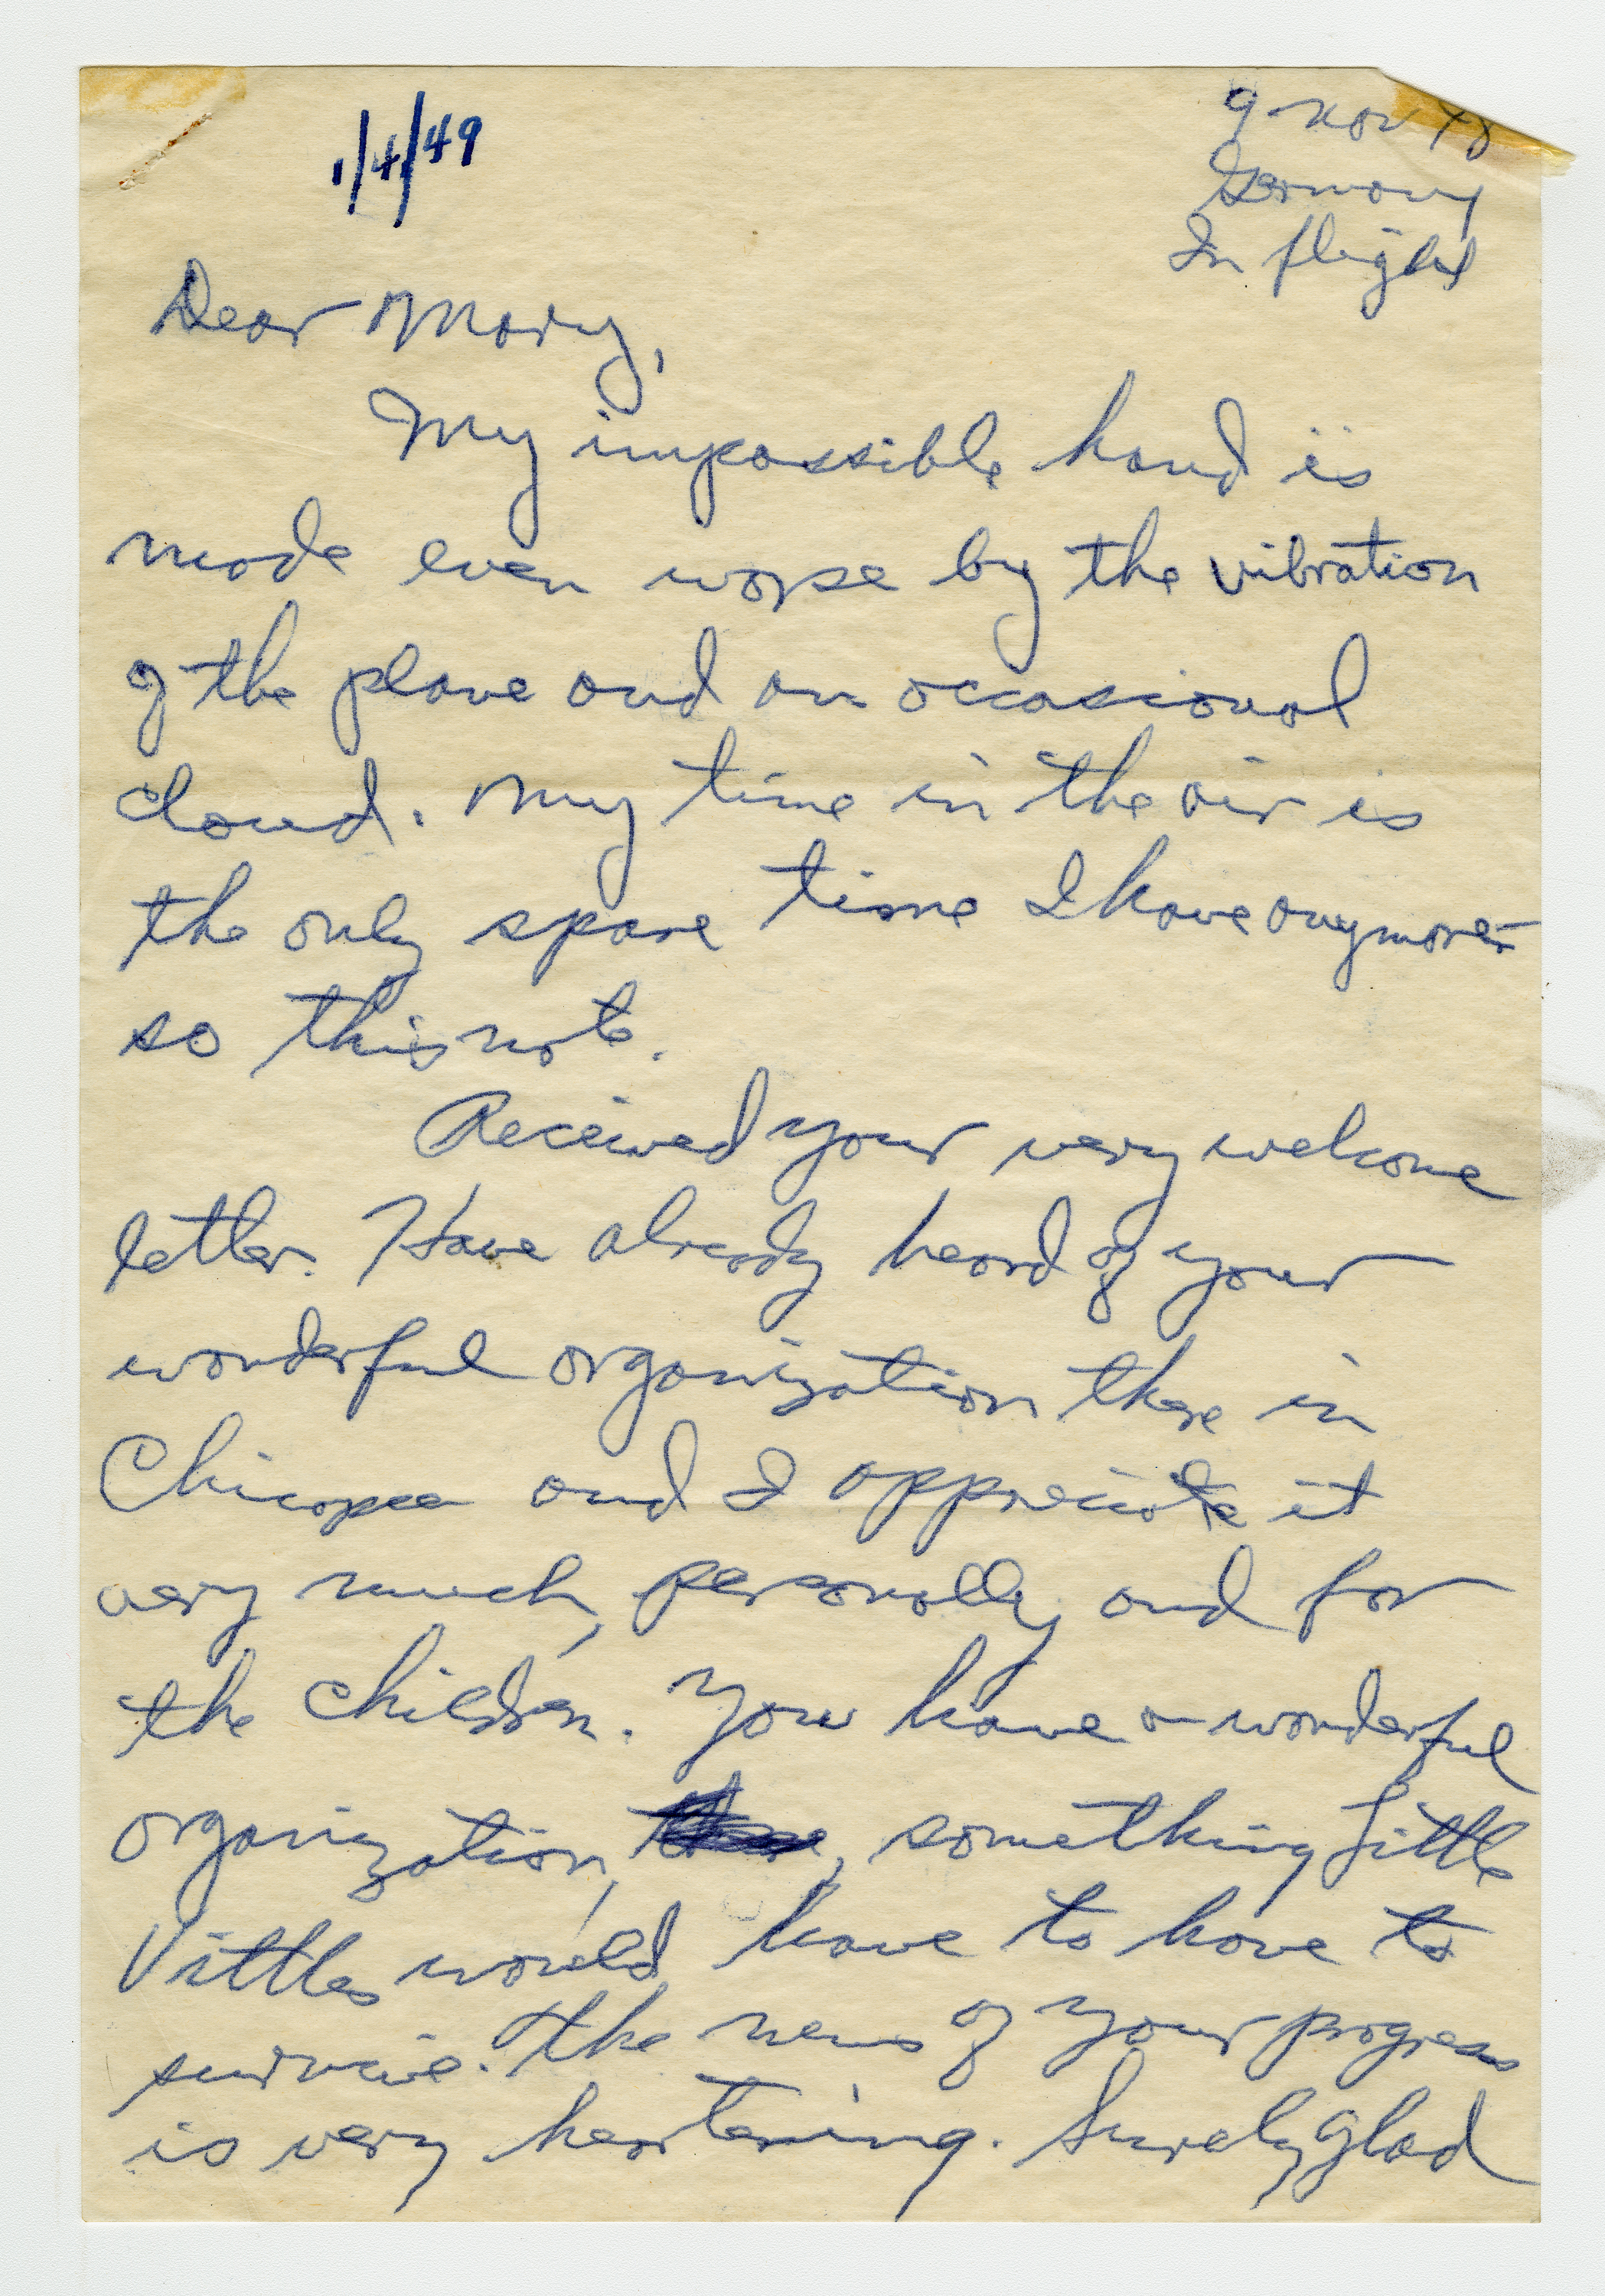 1/4/49
9 Nov 48
Germany
In flight
Dear Mary,
My impossible hand is
made even worse by the vibration
of the plane and an occasional
cloud. My time in the air is
the only spare time I have anymore -
so this note.
Received your very welcome
letter. Have already heard of your
wonderful organization there in
Chicopee and I appreciate it
very much, personally and for
the children. You have a wonderful
organization, , something Little
Vittles would have to have to
survive. The news of your progress
is very heartening. Surely glad